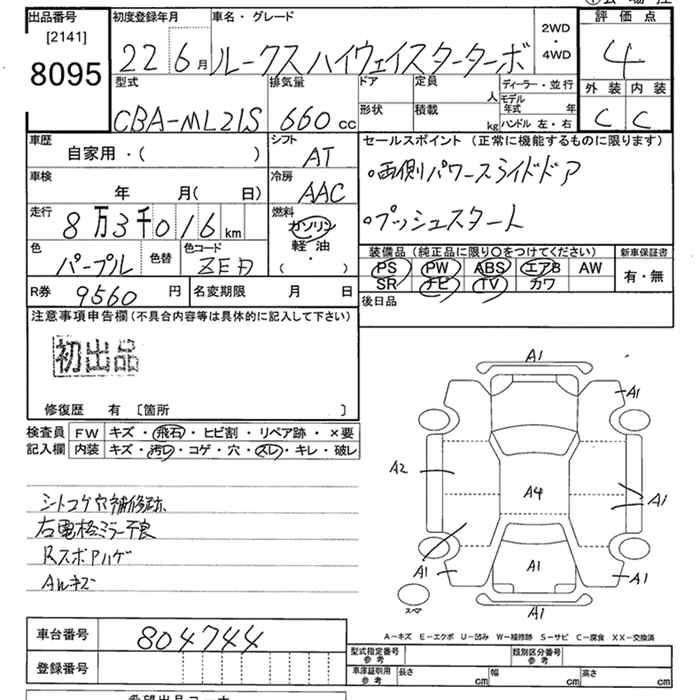 出品番号 初度登録年月 車名・グレード 2WD ・ 4WD 評価点
[2141]
8095
22 6月 ルークスハイウェイスターターボ 4
型式 排気量 ドア 定員 人 ディーラー・並行 外装 内装
CBA-ML21S 660cc 形状 積載 kg モデル年式 年 ハンドル 左・右 C C
車歴 シフト セールスポイント (正常に機能するものに限ります)
自家用・( ) AT
・両側パワースライドドア
車検 冷房
年 月( 日) AAC
走行 燃料 ・プッシュスタート
8万3千016km ガソリン
軽油
・
( )
色 色替 色コード 装備品(純正品に限り○をつけてください) 新車保証書
パープル PS PW ABS エアB AW 有・無
SR ナビ TV カワ
R券 9560円 名変期限 月 日 後日品
注意事項申告欄(不具合内容等は具体的に記入して下さい)
初出品
修復歴 有 [箇所 ]
検査員 FW キズ・飛石・ヒビ割・リペア跡・×要
記入欄 内装 キズ・汚レ・コゲ・穴・スレ・キレ・破レ
シートコゲ穴補修跡
右電格ミラー不良
Rスポアハゲ
AWキズ
A1
A1
A2
A4
A1
A1
A1
A1
A1
スペア
A-キズ E-エクボ U-凹み W-補修跡 S-サビ C-腐食 XX-交換済
車台番号 804744
型式指定番号 参考 類別区分番号 参考
登録番号
車庫証明用 参考 長さ cm 幅 cm 高さ cm
希望出品コーナー